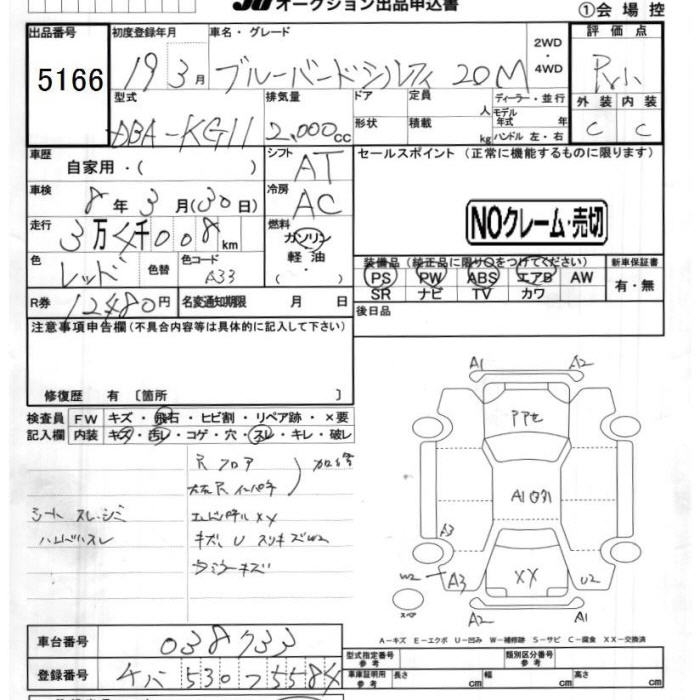 オークション出品申込書
①会場控
出品番号 初度登録年月 車名・グレード 2WD・4WD 評価点
5166 19 3月 ブルーバードシルフィ 20M
型式 排気量 ドア 定員 人 ディーラー・並行 外装 内装
DBA-KG11 2,000cc 形状 積載 kg モデル年式 年 ハンドル 左・右 C C
車歴 シフト セールスポイント (正常に機能するものに限ります)
自家用・( ) AT
車検 冷房
8年 3月(30日) AC
NOクレーム・売切
走行 燃料
3万 千008km ガソリン
軽油・
( )
色 色替 色コード 装備品(純正品に限り○をつけてください) 新車保証書
レッド A33 PS PW ABS エアB AW 有・無
SR ナビ TV カワ
R券 12480円 名変通知期限 月 日 後日品
注意事項申告欄(不具合内容等は具体的に記入して下さい)
修復歴 有 〔箇所 〕
検査員 FW キズ・飛石・ヒビ割・リペア跡・×要
記入欄 内装 キズ・汚レ・コゲ・穴・スレ・キレ・破レ
A1 A2
A3
W2 A3 XX U2
スペア
A2 A1
シート スレ・シミ
ハンドルスレ
A-キズ E-エクボ U-凹み W-補修跡 S-サビ C-腐食 XX-交換済
車台番号 038733
型式指定番号 参考 類別区分番号 参考
登録番号 530 5584
車庫証明用 参考 長さ cm 幅 cm 高さ cm